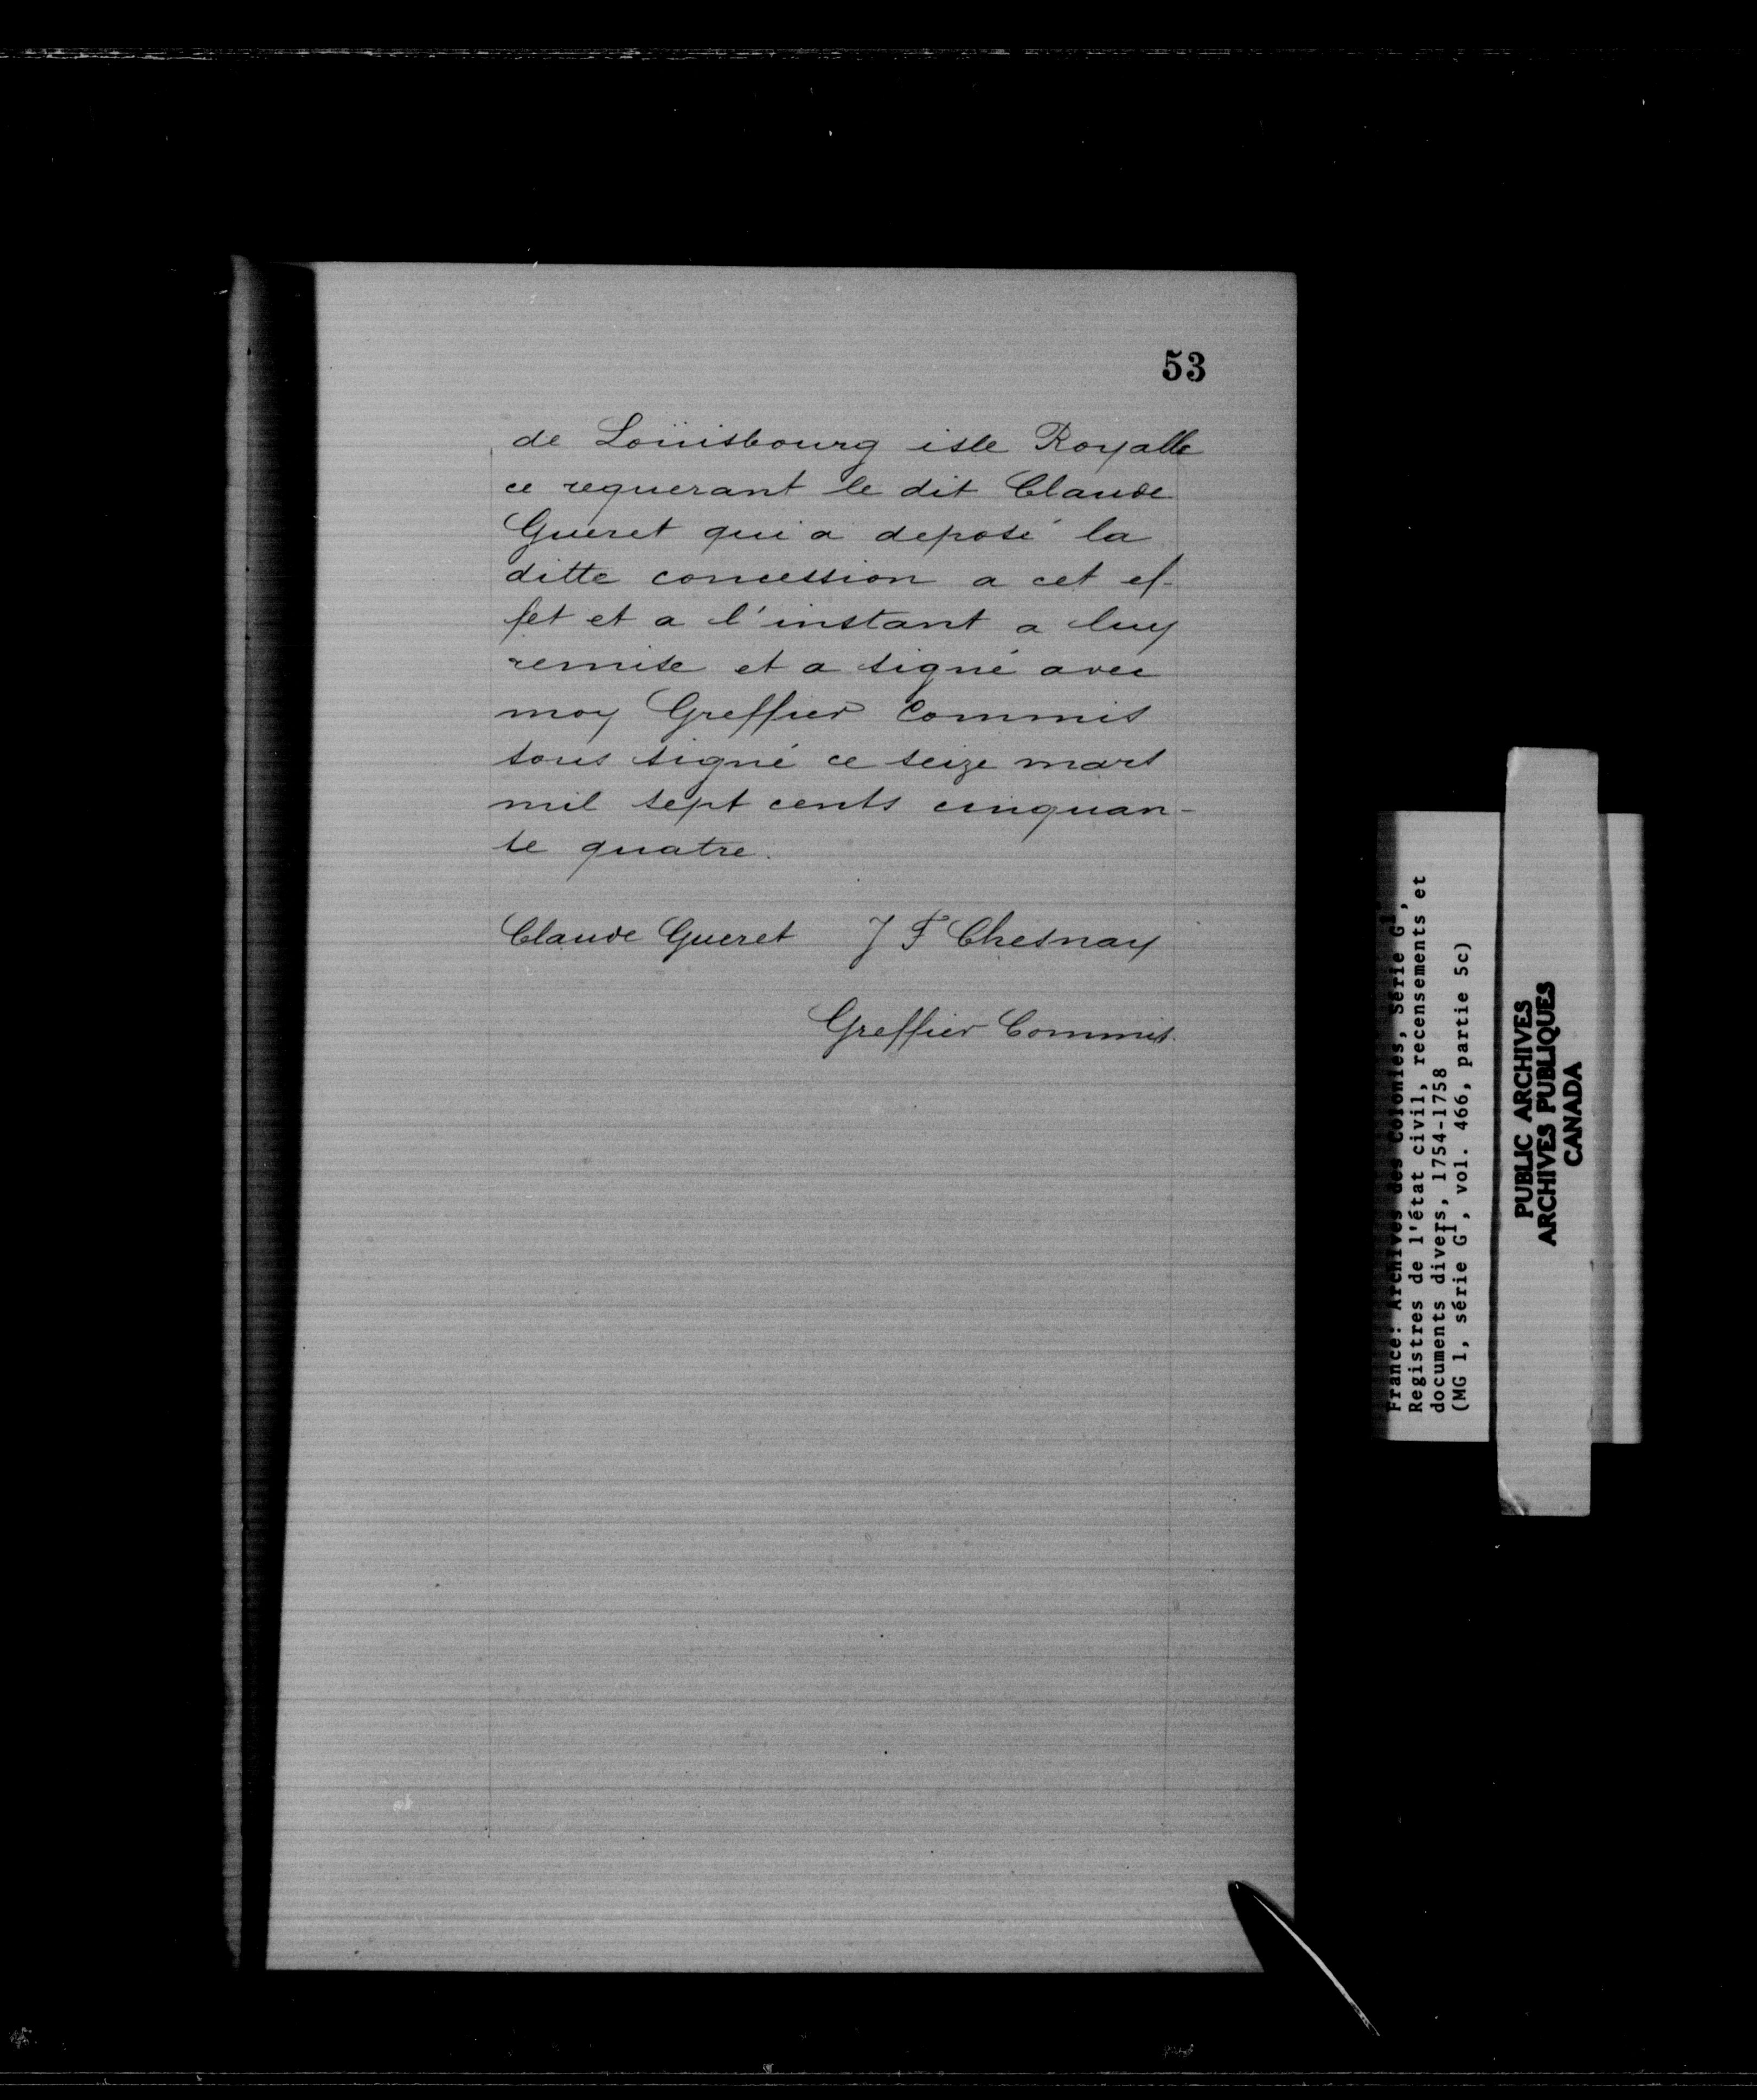 53
de Loüisbourg isle Royalle
ce requerant le dit Claude
Gueret qui a deposé la
ditte concession a cet ef-
fet et a l'instant a luy
remise et a signé avec
moy Greffier Commis
sous signé ce seize mars
mil sept cents cinquan-
te quatre.
Claude Gueret J F Chesnay
Greffier Commis.
France: Archives des Colonies, Série G1,
Registres de l'état civil, recensements et
documents divers, 1754-1758
(MG 1, série G1, vol. 466, partie 5c)
PUBLIC ARCHIVES
ARCHIVES PUBLIQUES
CANADA